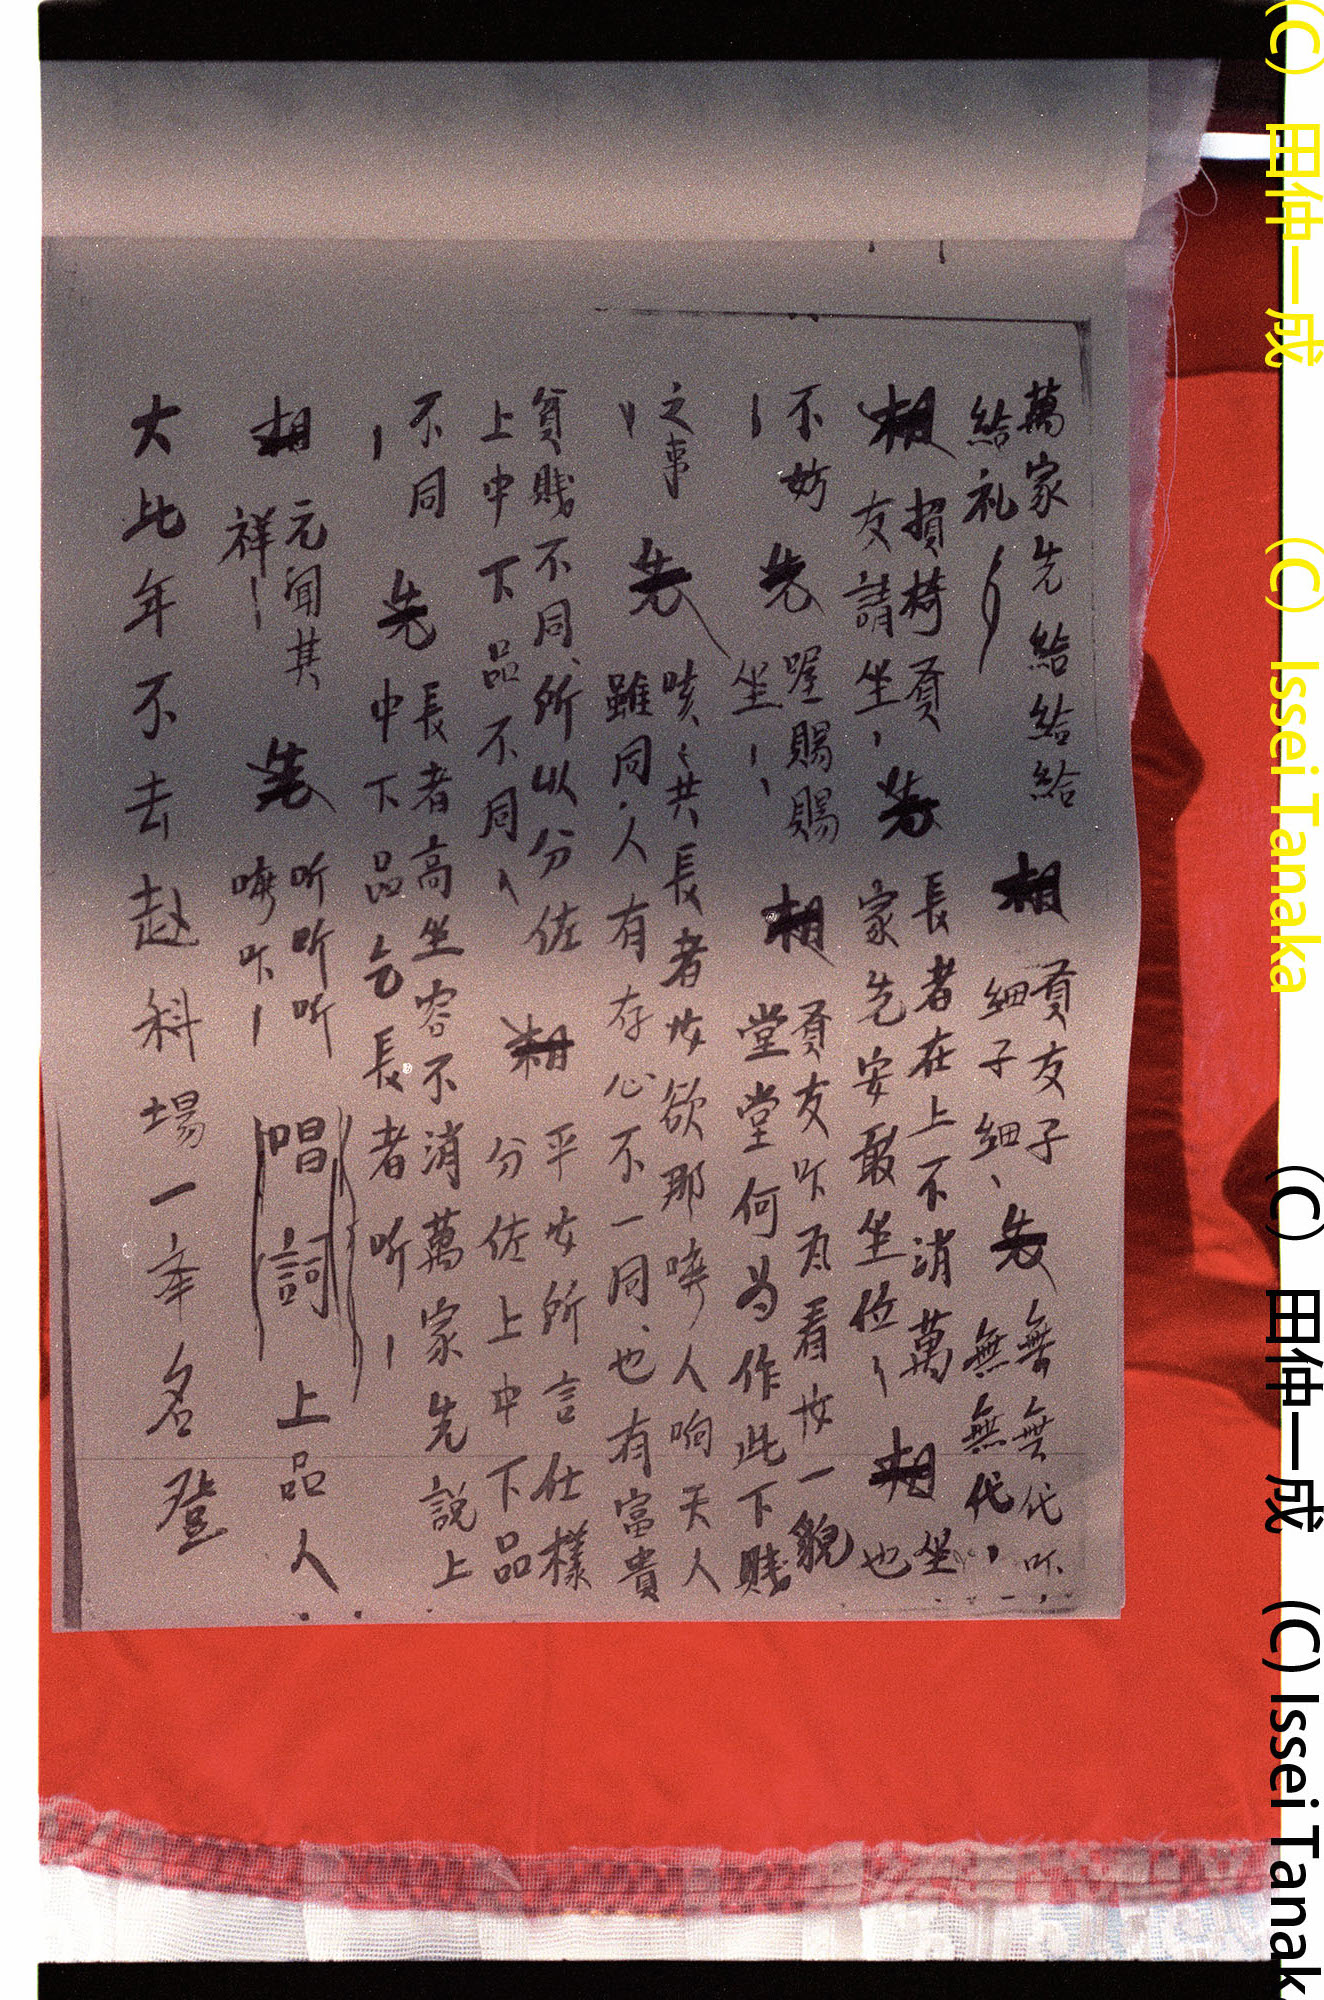 萬家先給給給 相 賓友子 先 無無代吓
給礼 細子細 無無代
相 損椅賓 先 長者在上不消萬 相 坐
友請坐 家先安敢坐位 也
不妨 先 喔賜賜 相 賓友吓 看女一貌
坐 堂堂何為作此下賤
之事 先 咳 共長者女欲那 人响天人
雖同人有存心不一同也有富貴
貧賤不同所以分佐 相 平女所言仕樣
上中下下品不同 分佐上中下品
不同 先 長者高坐容不消萬家先説上
中下品乞長者听
相 元聞其 先 听听听 唱詞 上品人
祥 吓
大比年不去赴科場一年名登
(C) 田仲一成 (C) Issei Tanaka (C) 田仲一成 (C) Issei Tanak